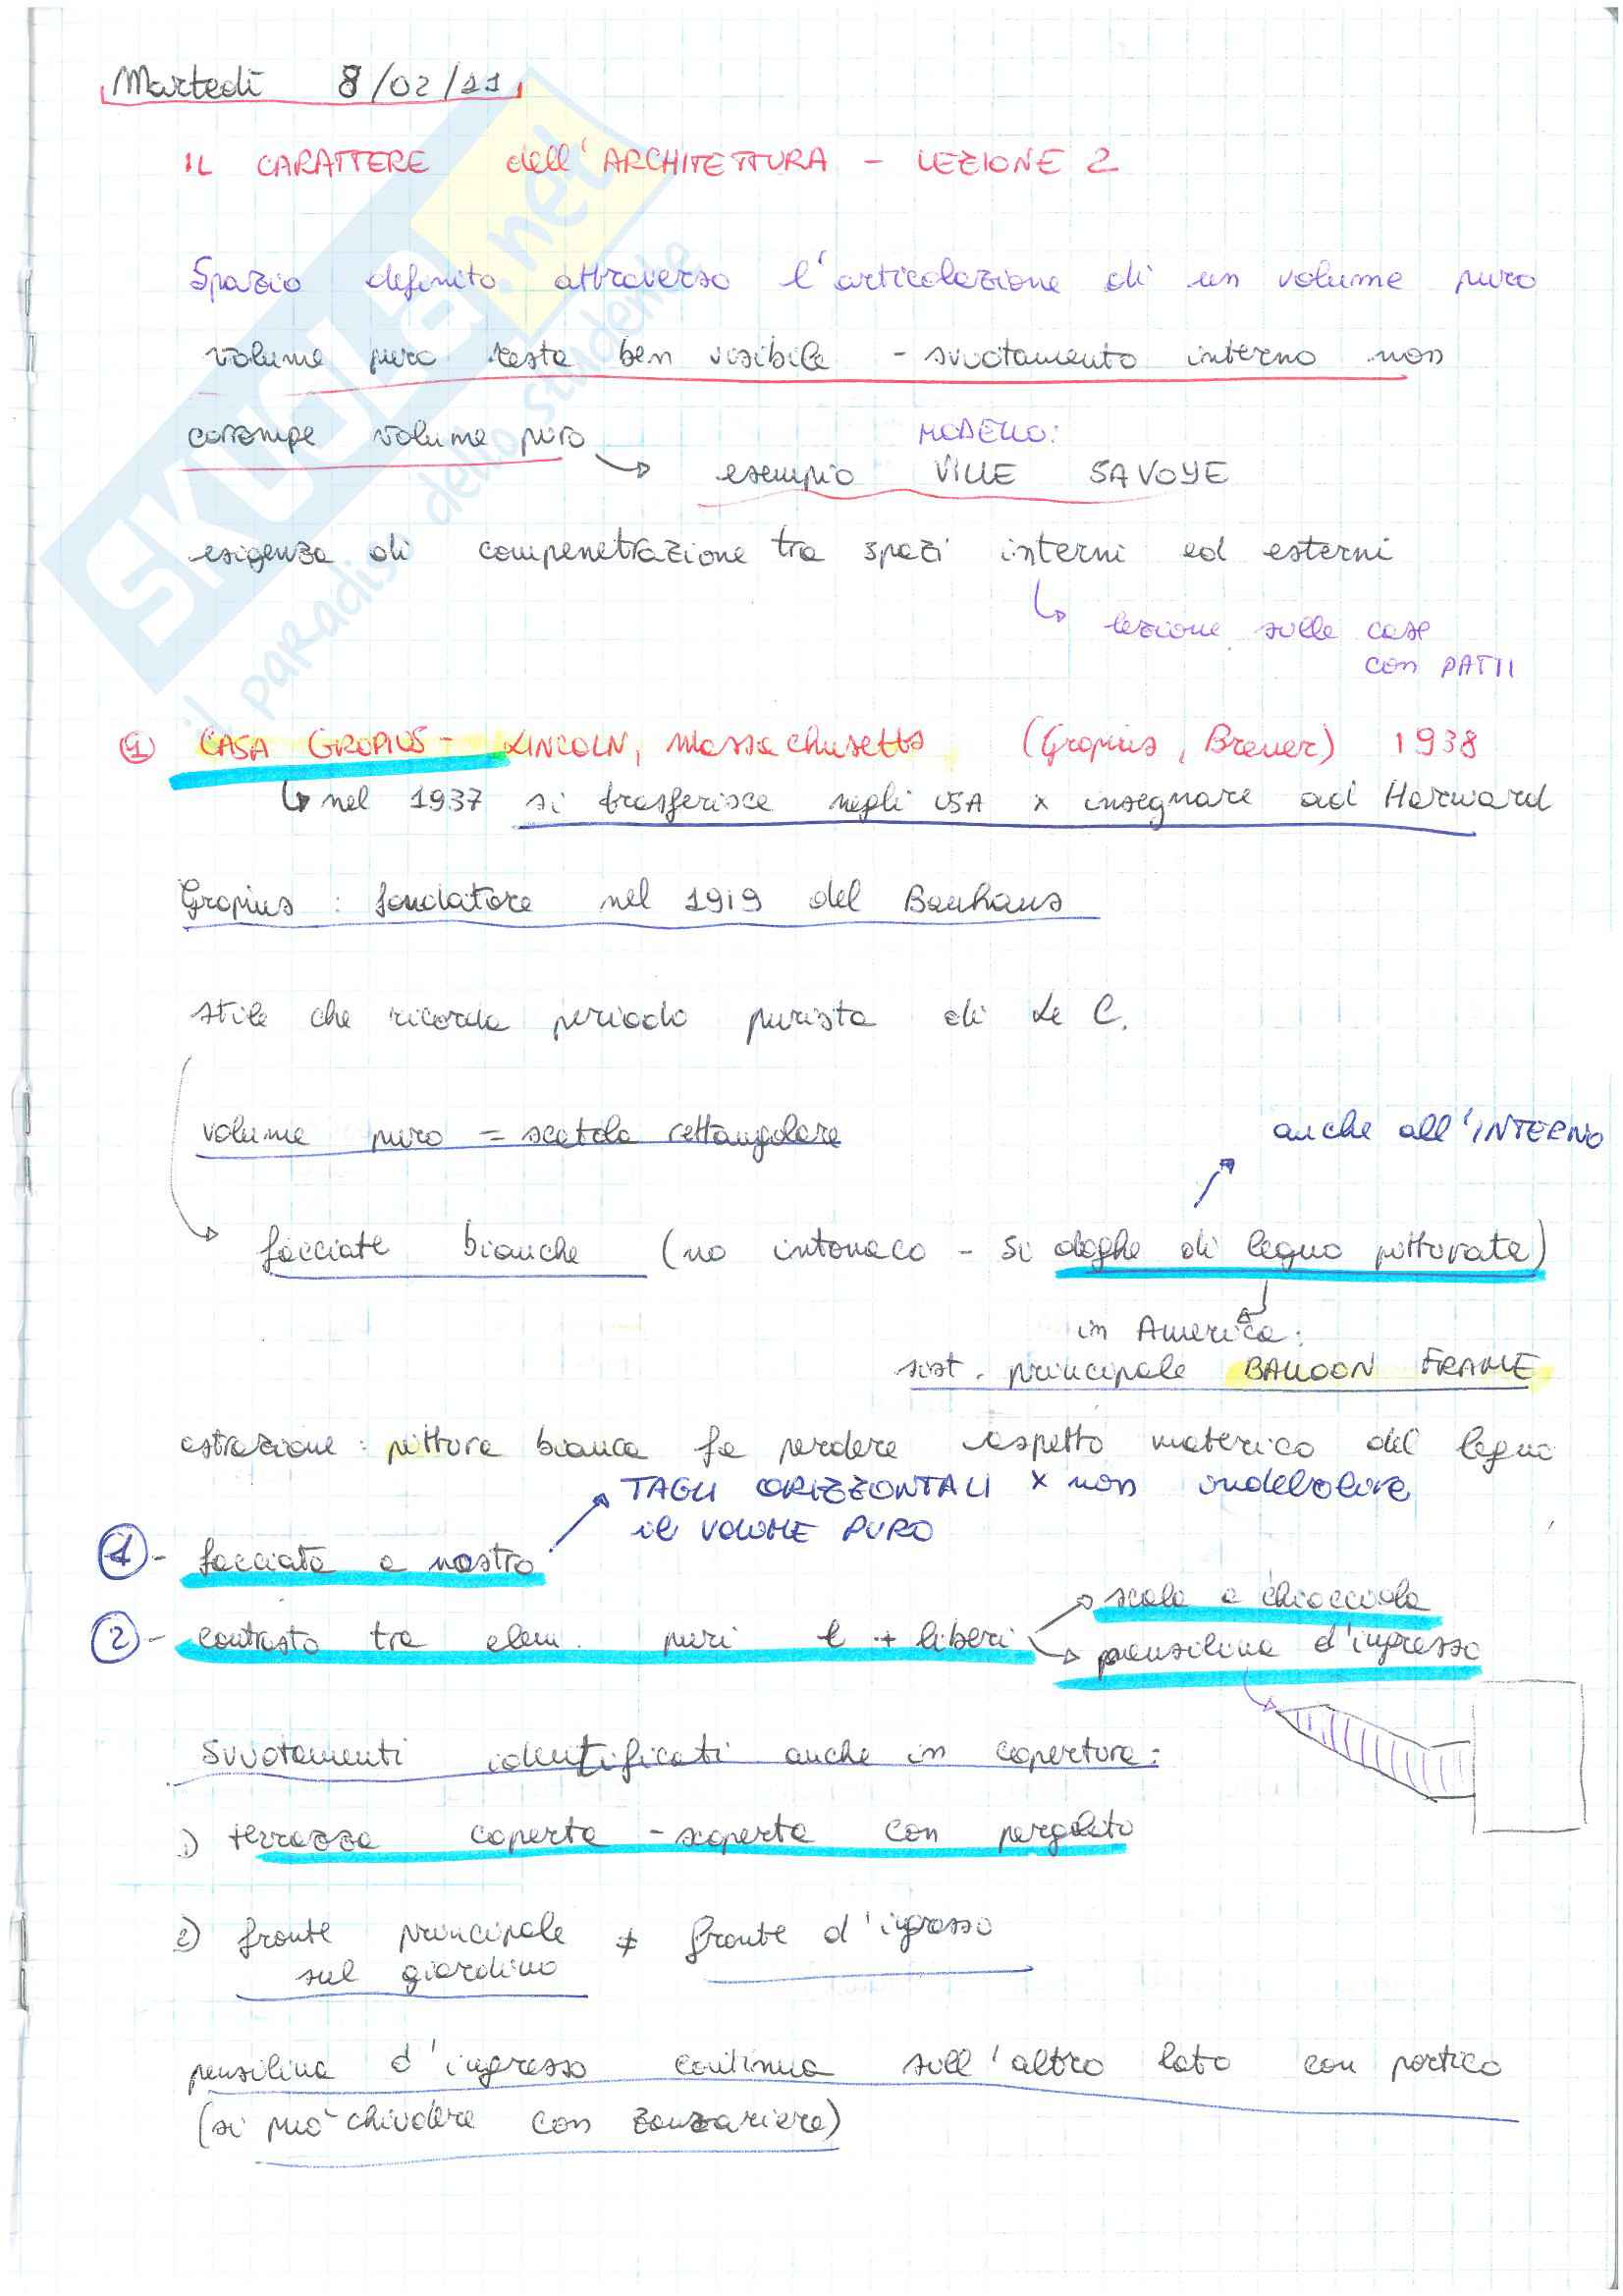 Martedì 8/02/11
IL CARATTERE dell'ARCHITETTURA - LEZIONE 2
Spazio definito attraverso l'articolazione di un volume puro
volume puro resta ben visibile - svuotamento interno non
corrompe volume puro
MODELLO:
esempio VILLE SAVOYE
esigenza di compenetrazione tra spazi interni ed esterni
lezione sulle case
con PATII
1 CASA GROPIUS - LINCOLN, Massachusetts (Gropius, Breuer) 1938
nel 1937 si trasferisce negli USA x insegnare ad Harward
Gropius : fondatore nel 1919 del Bauhaus
stile che ricorda periodo purista di Le C.
volume puro = scatola rettangolare
anche all'INTERNO
facciate bianche (no intonaco - si doghe di legno pitturate)
in America:
sist. principale BALLOON FRAME
astrazione : pittura bianca fa perdere aspetto materico del legno
TAGLI ORIZZONTALI x non indebolire
il VOLUME PURO
1 - facciata a nastro
scala a chiocciola
2 - contrasto tra elem. puri e + liberi
pensilina d'ingresso
Svuotamenti identificati anche in copertura:
1) terrazza coperta - scoperta con pergolato
2) fronte principale ≠ fronte d'ingresso
sul giardino
pensilina d'ingresso continua sull'altro lato con portico
(si può chiudere con zanzariere)
SKUOLA.net
il paradiso dello studente